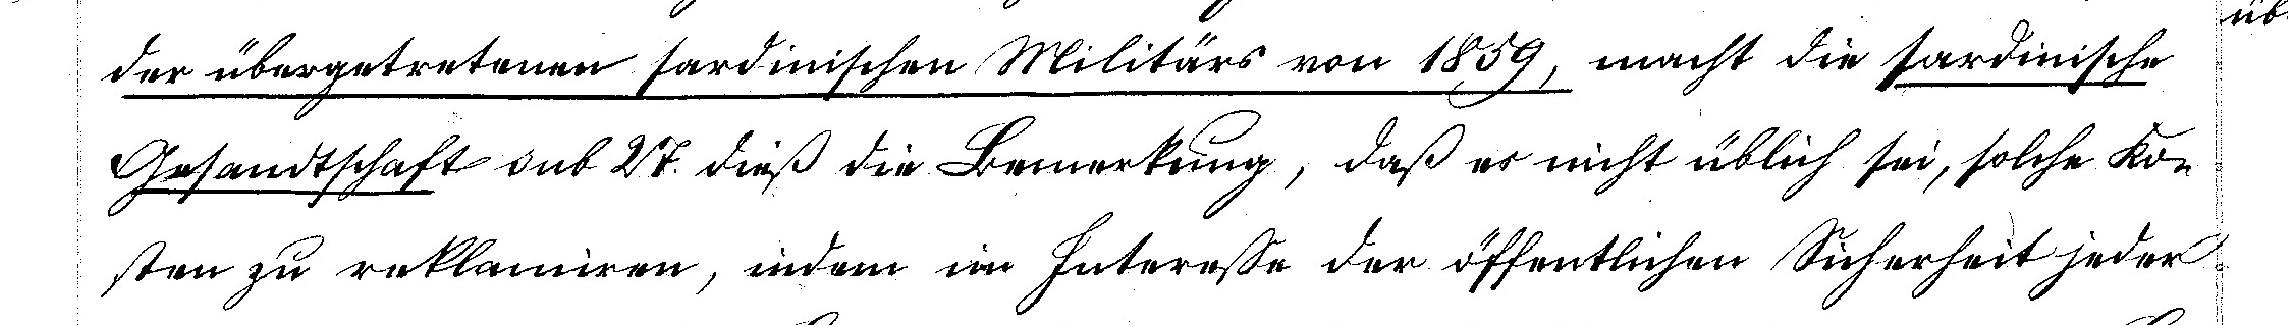 der übergetretenen sardinischen Militärs von 1859, macht die sardinische
Gesandtschaft sub 27. dieß die Bemerkung, daß es nicht üblich sei, solche Ko-
sten zu reklamiren, indem im Interesse der öffentlichen Sicherheit jeder